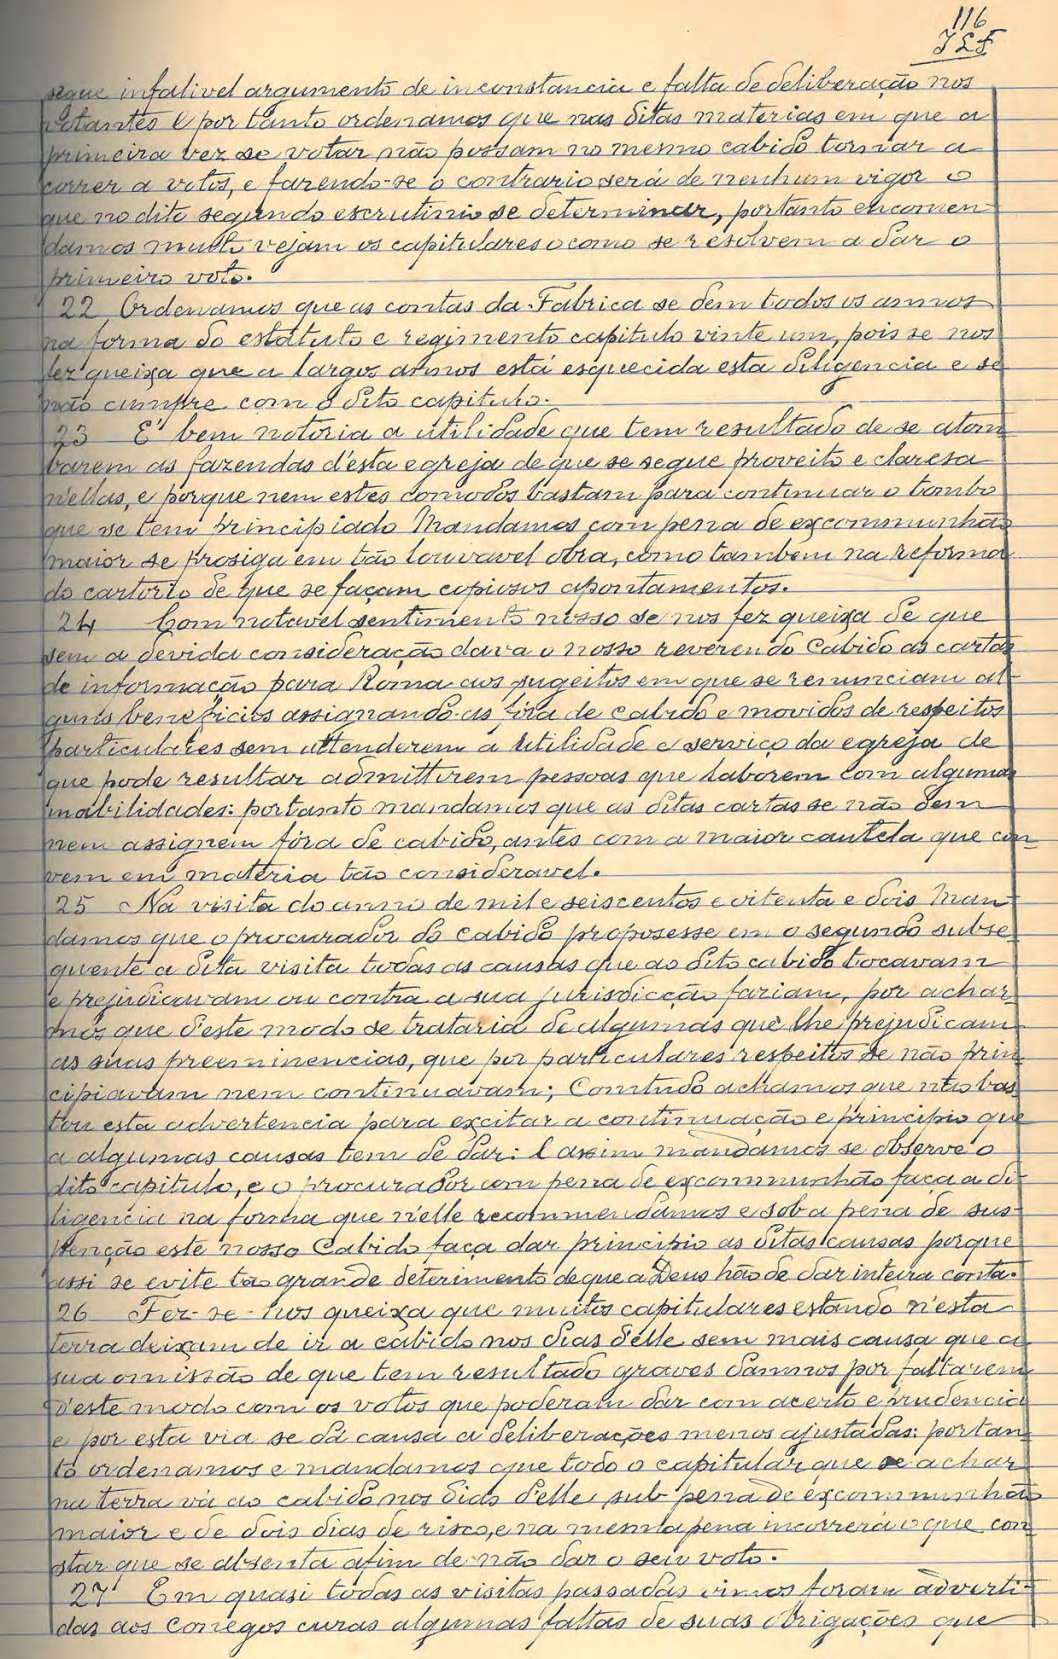 116
JLF
segue infalivel argumento de inconstancia e falta de deliberação nos
votantes e por tanto ordenamos que nas ditas materias em que a
primeira vez se votar não possam no mesmo cabido tornar a
correr a votos, e fazendo-se o contrario será de nenhum vigor o
que no dito segundo escrutinio se determinar, portanto encomen-
damos muito vejam os capitulares o como se resolvem a dar o
primeiro voto.
22 Ordenamos que as contas da Fabrica se dem todos os annos
na forma do estatuto e regimento capitulo vinte um, pois se nos
fez queixa que a largos annos está esquecida esta diligencia e se
não cumpre com o dito capitulo.
23 E' bem notoria a utilidade que tem resultado de se atom
barem as fazendas d'esta egreja de que se segue proveito e claresa
n'ellas, e porque nem estes comodos bastam para continuar o tombo
que se tem principiado Mandamos com pena de excommunhão
maior se prosiga em tão louvavel obra, como tambem na reforma
do cartorio de que se façam copiosos apontamentos.
24 Com notavel sentimento nosso se nos fez queixa de que
sem a devida consideração dava o nosso reverendo Cabido as cartas
de informação para Roma aos sugeitos em que se renunciam al-
guns beneficios assignando-as fóra de cabido e movidos de respeitos
particulares sem attenderem a utilidade e serviço da egreja de
que pode resultar admittirem pessoas que laborem com algumas
inabilidades: portanto mandamos que as ditas cartas se não dem
nem assignem fóra de cabido, antes com a maior cautela que con-
vem em materia tão consideravel.
25 Na visita do anno de mil e seiscentos e oitenta e dois Man-
damos que o procurador do cabido proposesse em o segundo subse-
quente a dita visita todas as causas que ao dito cabido tocavam
e prejudicavam ou contra a sua jurisdicção fariam, por achar-
mos que d'este modo se trataria de algumas que lhe prejudicam
as suas preeminencias, que por particulares respeitos se não prin-
cipiavam nem continuavam; Comtudo achamos que não bas-
tou esta advertencia para excitar a continuação e principio que
a algumas causas tem de dar: E assim mandamos se observe o
dito capitulo, e o procurador com pena de excommunhão faça a di-
ligencia na forma que n'elle recommendamos e sob a pena de sus-
penção este nosso Cabido faça dar principio as ditas causas porque
assi se evite tão grande deterimento de que a Deus hão de dar inteira conta.
26 Fez-se-nos queixa que muitos capitulares estando n'esta
terra deixam de ir a cabido nos dias d'elle sem mais causa que a
sua omissão de que tem resultado graves damnos por faltarem
d'este modo com os votos que poderam dar com acerto e prudencia
e por esta via se dá causa a deliberações menos ajustadas: portan-
to ordenamos e mandamos que todo o capitular que se achar
na terra vá ao cabido nos dias d'elle sub pena de excommunhão
maior e de dois dias de risco, e na mesma pena incorrerá o que con-
star que se absenta afim de não dar o seu voto.
27 Em quasi todas as visitas passadas vimos foram adverti-
das aos conegos curas algumas faltas de suas obrigações que